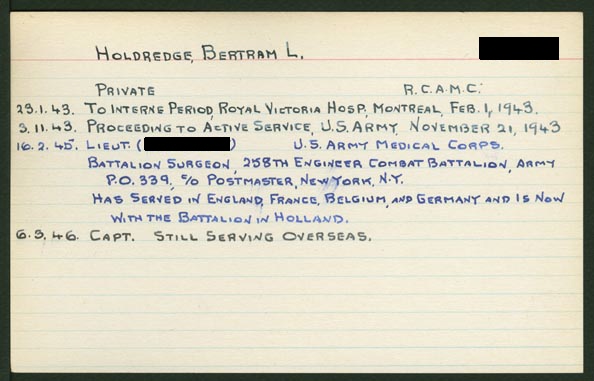 HOLDREDGE, BERTRAM L.
PRIVATE R.C.A.M.C.
23.1.43. TO INTERNE PERIOD, ROYAL VICTORIA HOSP., MONTREAL, FEB. 1, 1943.
3.11.43. PROCEEDING TO ACTIVE SERVICE, U.S. ARMY, NOVEMBER 21, 1943
16.2.45. LIEUT. ( ) U.S. ARMY MEDICAL CORPS.
BATTALION SURGEON, 258TH ENGINEER COMBAT BATTALION, ARMY
P.O. 339, c/o POSTMASTER, NEW YORK, N.Y.
HAS SERVED IN ENGLAND, FRANCE, BELGIUM, AND GERMANY AND IS NOW
WITH THE BATTALION IN HOLLAND.
6.3.46. CAPT. STILL SERVING OVERSEAS.